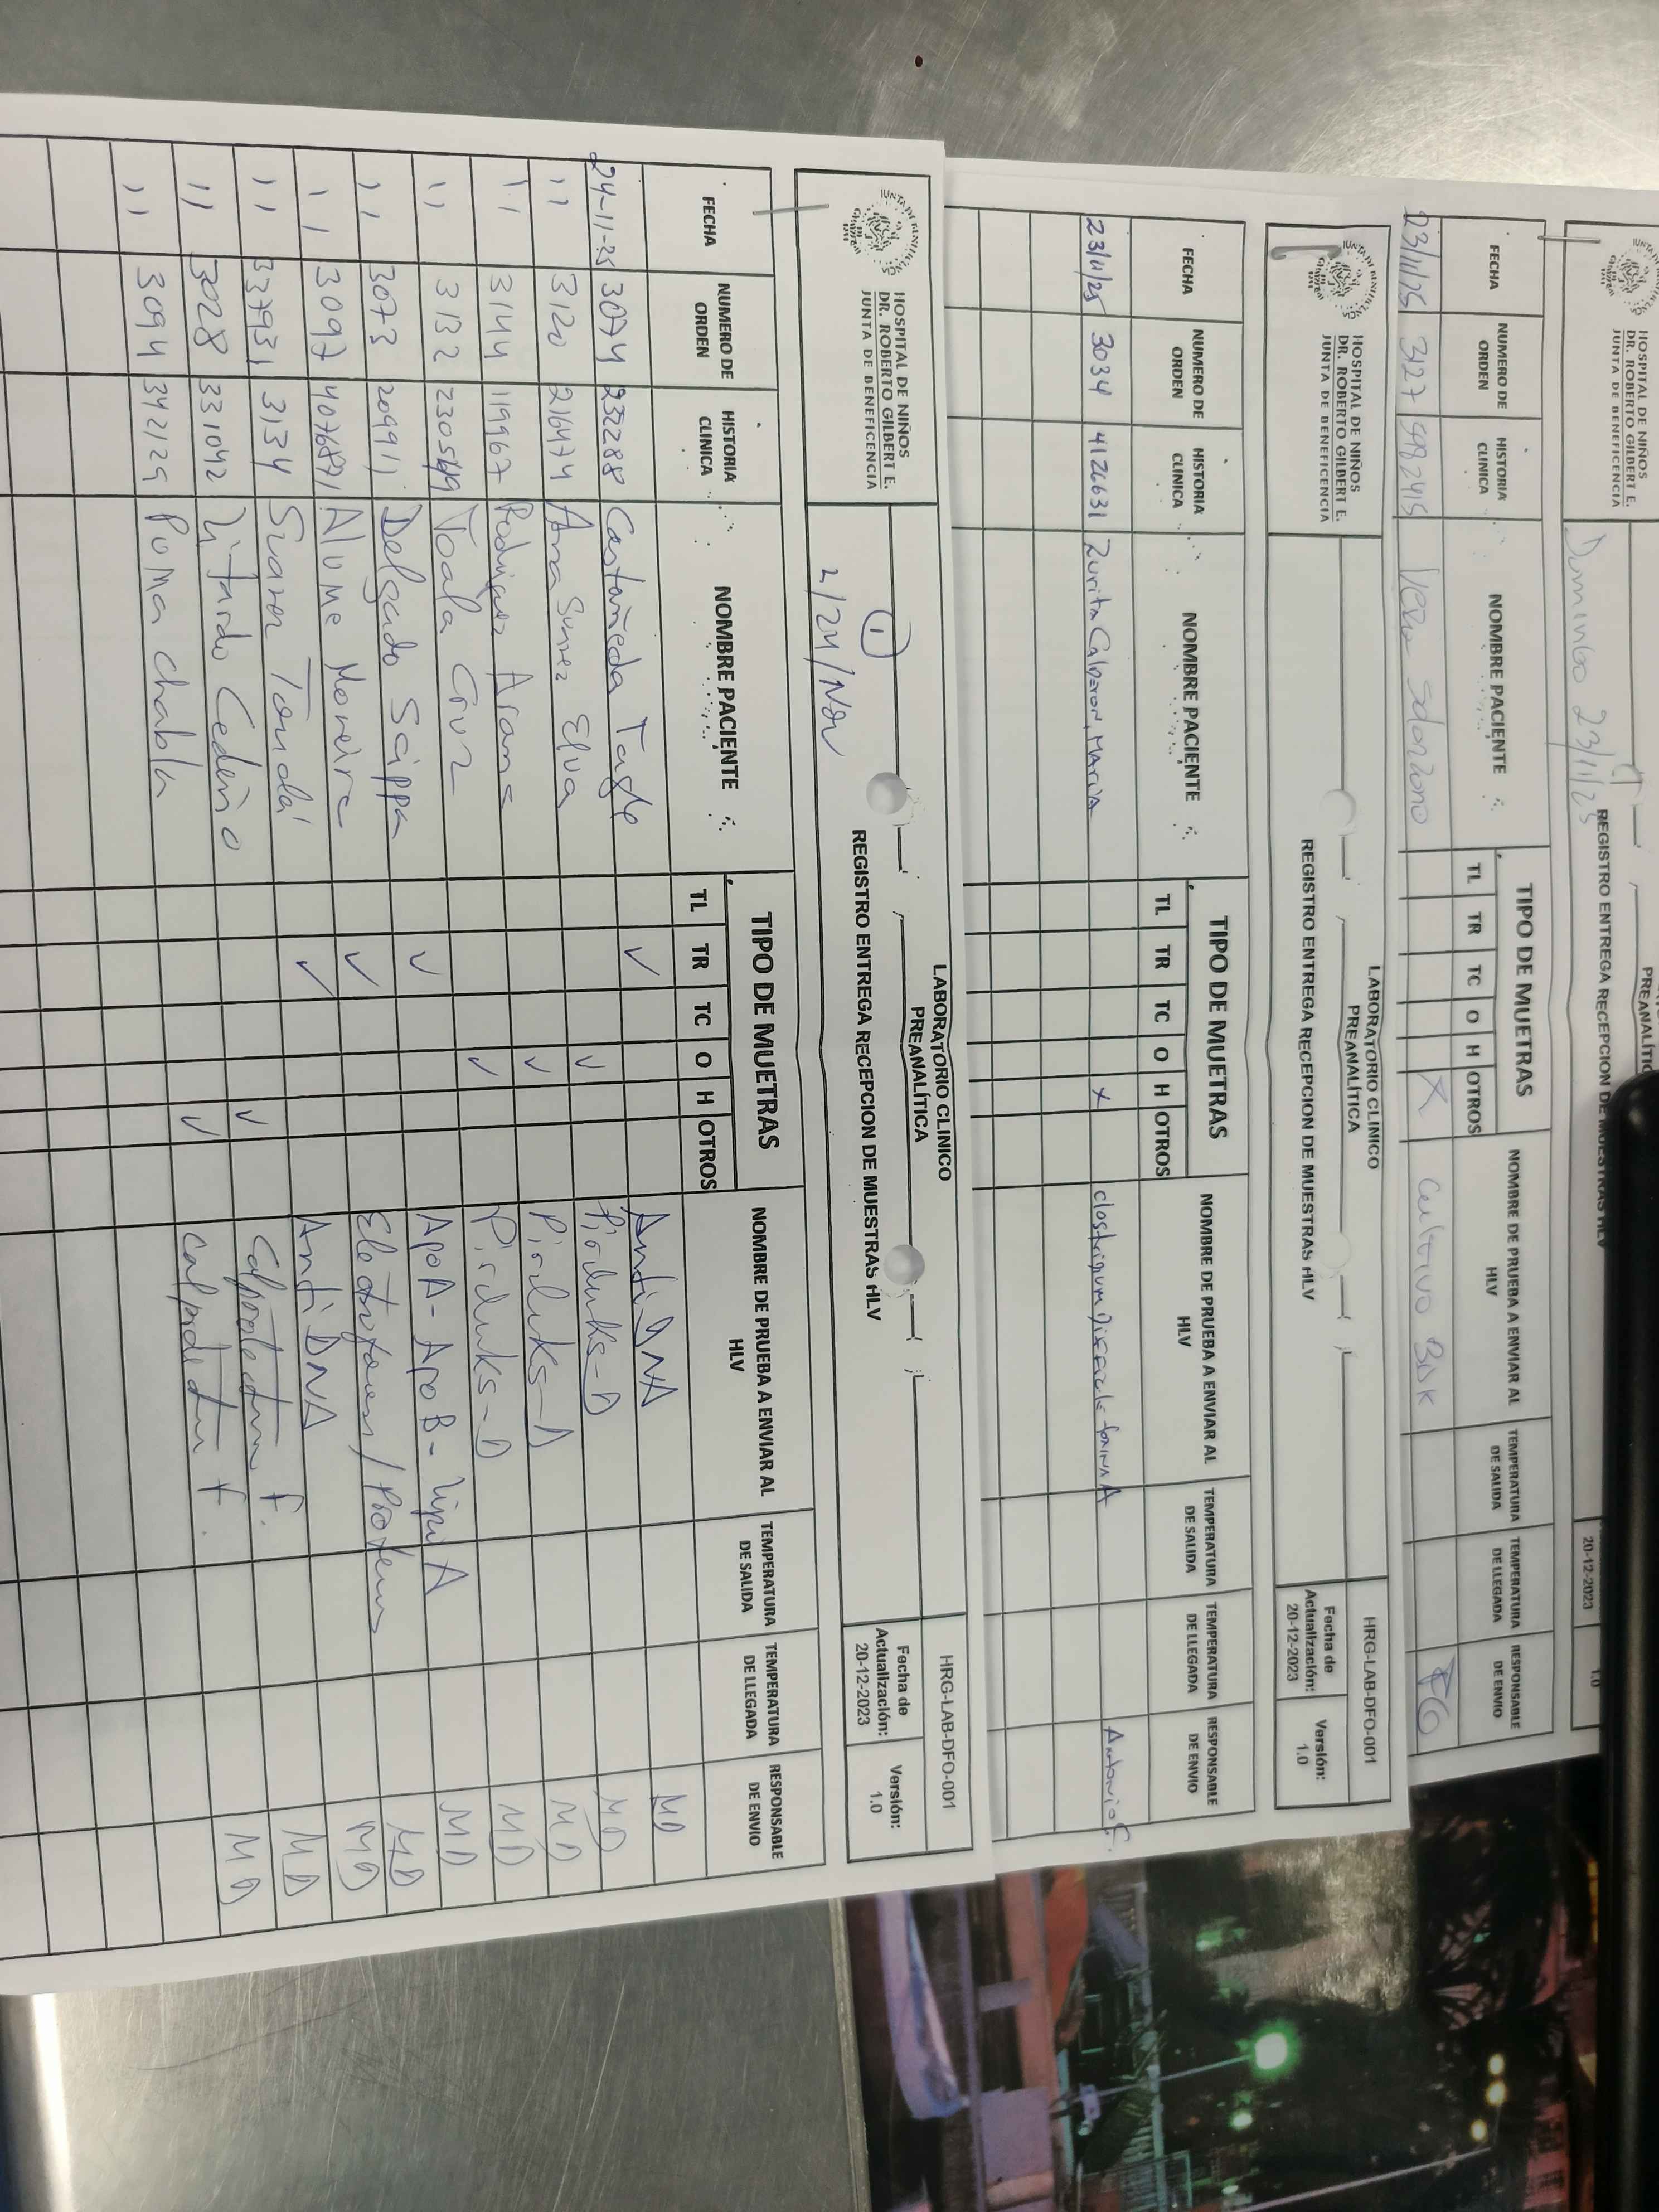 HOSPITAL DE NIÑOS
DR. ROBERTO GILBERT E.
JUNTA DE BENEFICENCIA
Domingo 23/11/25
PREANALÍTIC
REGISTRO ENTREGA RECEPCION DE MUESTRAS HLV
20-12-2023
1.0
FECHA NUMERO DE ORDEN HISTORIA CLINICA NOMBRE PACIENTE TIPO DE MUETRAS TL TR TC O H OTROS NOMBRE DE PRUEBA A ENVIAR AL HLV TEMPERATURA DE SALIDA TEMPERATURA DE LLEGADA RESPONSABLE DE ENVIO
23/11/25 3127 Vera Solorzano X Cultivo BK FG
HOSPITAL DE NIÑOS
DR. ROBERTO GILBERT E.
JUNTA DE BENEFICENCIA
LABORATORIO CLINICO
PREANALÍTICA
REGISTRO ENTREGA RECEPCION DE MUESTRAS HLV
HRG-LAB-DFO-001
Fecha de Actualización: 20-12-2023
Versión: 1.0
FECHA NUMERO DE ORDEN HISTORIA CLINICA NOMBRE PACIENTE TIPO DE MUETRAS TL TR TC O H OTROS NOMBRE DE PRUEBA A ENVIAR AL HLV TEMPERATURA DE SALIDA TEMPERATURA DE LLEGADA RESPONSABLE DE ENVIO
23/11/25 3034 4122631 Zurita Calderon, Maria x toxina A Antonio G.
HOSPITAL DE NIÑOS
DR. ROBERTO GILBERT E.
JUNTA DE BENEFICENCIA
LABORATORIO CLINICO
PREANALÍTICA
REGISTRO ENTREGA RECEPCION DE MUESTRAS HLV
HRG-LAB-DFO-001
Fecha de Actualización: 20-12-2023
Versión: 1.0
1
L/24/Nov
FECHA NUMERO DE ORDEN HISTORIA CLINICA NOMBRE PACIENTE TIPO DE MUETRAS TL TR TC O H OTROS NOMBRE DE PRUEBA A ENVIAR AL HLV TEMPERATURA DE SALIDA TEMPERATURA DE LLEGADA RESPONSABLE DE ENVIO
24-11-25 3074 232288 Castañeda Tagle ✓ Anti DNA MD
11 3120 216474 Elva ✓ MD
11 3144 119967 Rodriguez Arana ✓ MD
11 3132 Toala Cruz ✓ MD
11 3073 209911 Delgado Scippa ✓ ApoA - ApoB - Lipo A MD
11 3097 4076871 Alume Moreira ✓ MD
11 337931 3134 Suarez Tomalá ✓ Anti DNA MD
11 3028 331042 Litardo Cedeño ✓ MD
11 3094 342125 Poma Chabla ✓ MD